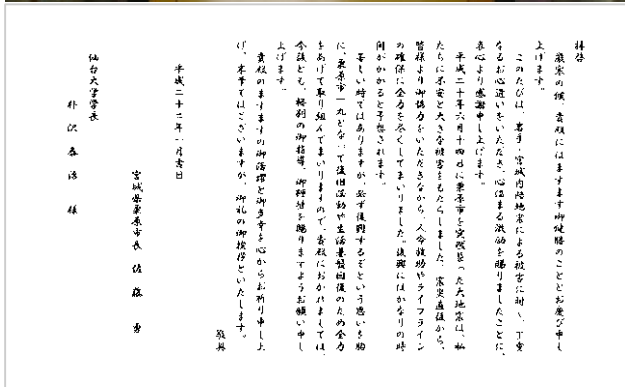 拝啓
厳寒の候、貴殿にはますます御健勝のこととお慶び申し
上げます。
このたびは、岩手・宮城内陸地震による被害に対し、丁寧
なるお心遣いをいただき、心温まる激励を賜りましたことに、
衷心より感謝申し上げます。
平成二十年六月十四日に栗原市を突然襲った大地震は、私
たちに不安と大きな被害をもたらしました。震災直後から、
皆様より御協力をいただきながら、人命救助やライフライン
の確保に全力を尽くしてまいりました。復興にはかなりの時
間がかかると予想されます。
苦しい時ではありますが、必ず復興するぞという思いを胸
に、栗原市一丸となって復旧活動や生活基盤回復のため全力
をあげて取り組んでまいりますので、貴殿におかれましては、
今後とも、格別の御指導、御鞭撻を賜りますようお願い申し
上げます。
貴殿のますますの御活躍と御多幸を心からお祈り申し上
げ、末筆ではございますが、御礼の御挨拶といたします。
敬具
平成二十二年一月吉日
宮城県栗原市長 佐藤 勇
仙台大学学長
朴沢 泰治 様